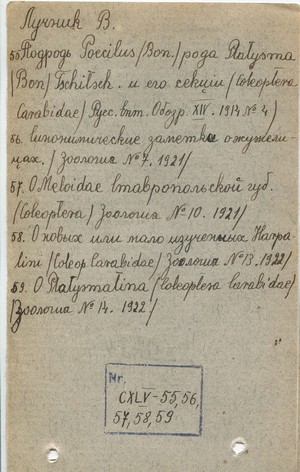 Лучник В.
55. Подродъ Poecilus /Bon/ рода Platysma
/Bon/ Tschitsch. и его секции /Coleoptera
Carabidae/ Русс. Энт. Обозр. XIV. 1914 № 4/
56. Синонимические заметки о жужели-
цах. / Зоология № 7. 1921/
57. О Meloidae Ставропольской губ.
/Coleoptera/ Зоология № 10. 1921/
58. О новых или мало изученных Harpa-
lini /Coleop. Carabidae/ Зоология № 13. 1922/
59. О Platysmatina /Coleoptera Carabidae/
/Зоология № 14. 1922/
Nr.
CXLV - 55, 56,
57, 58, 59